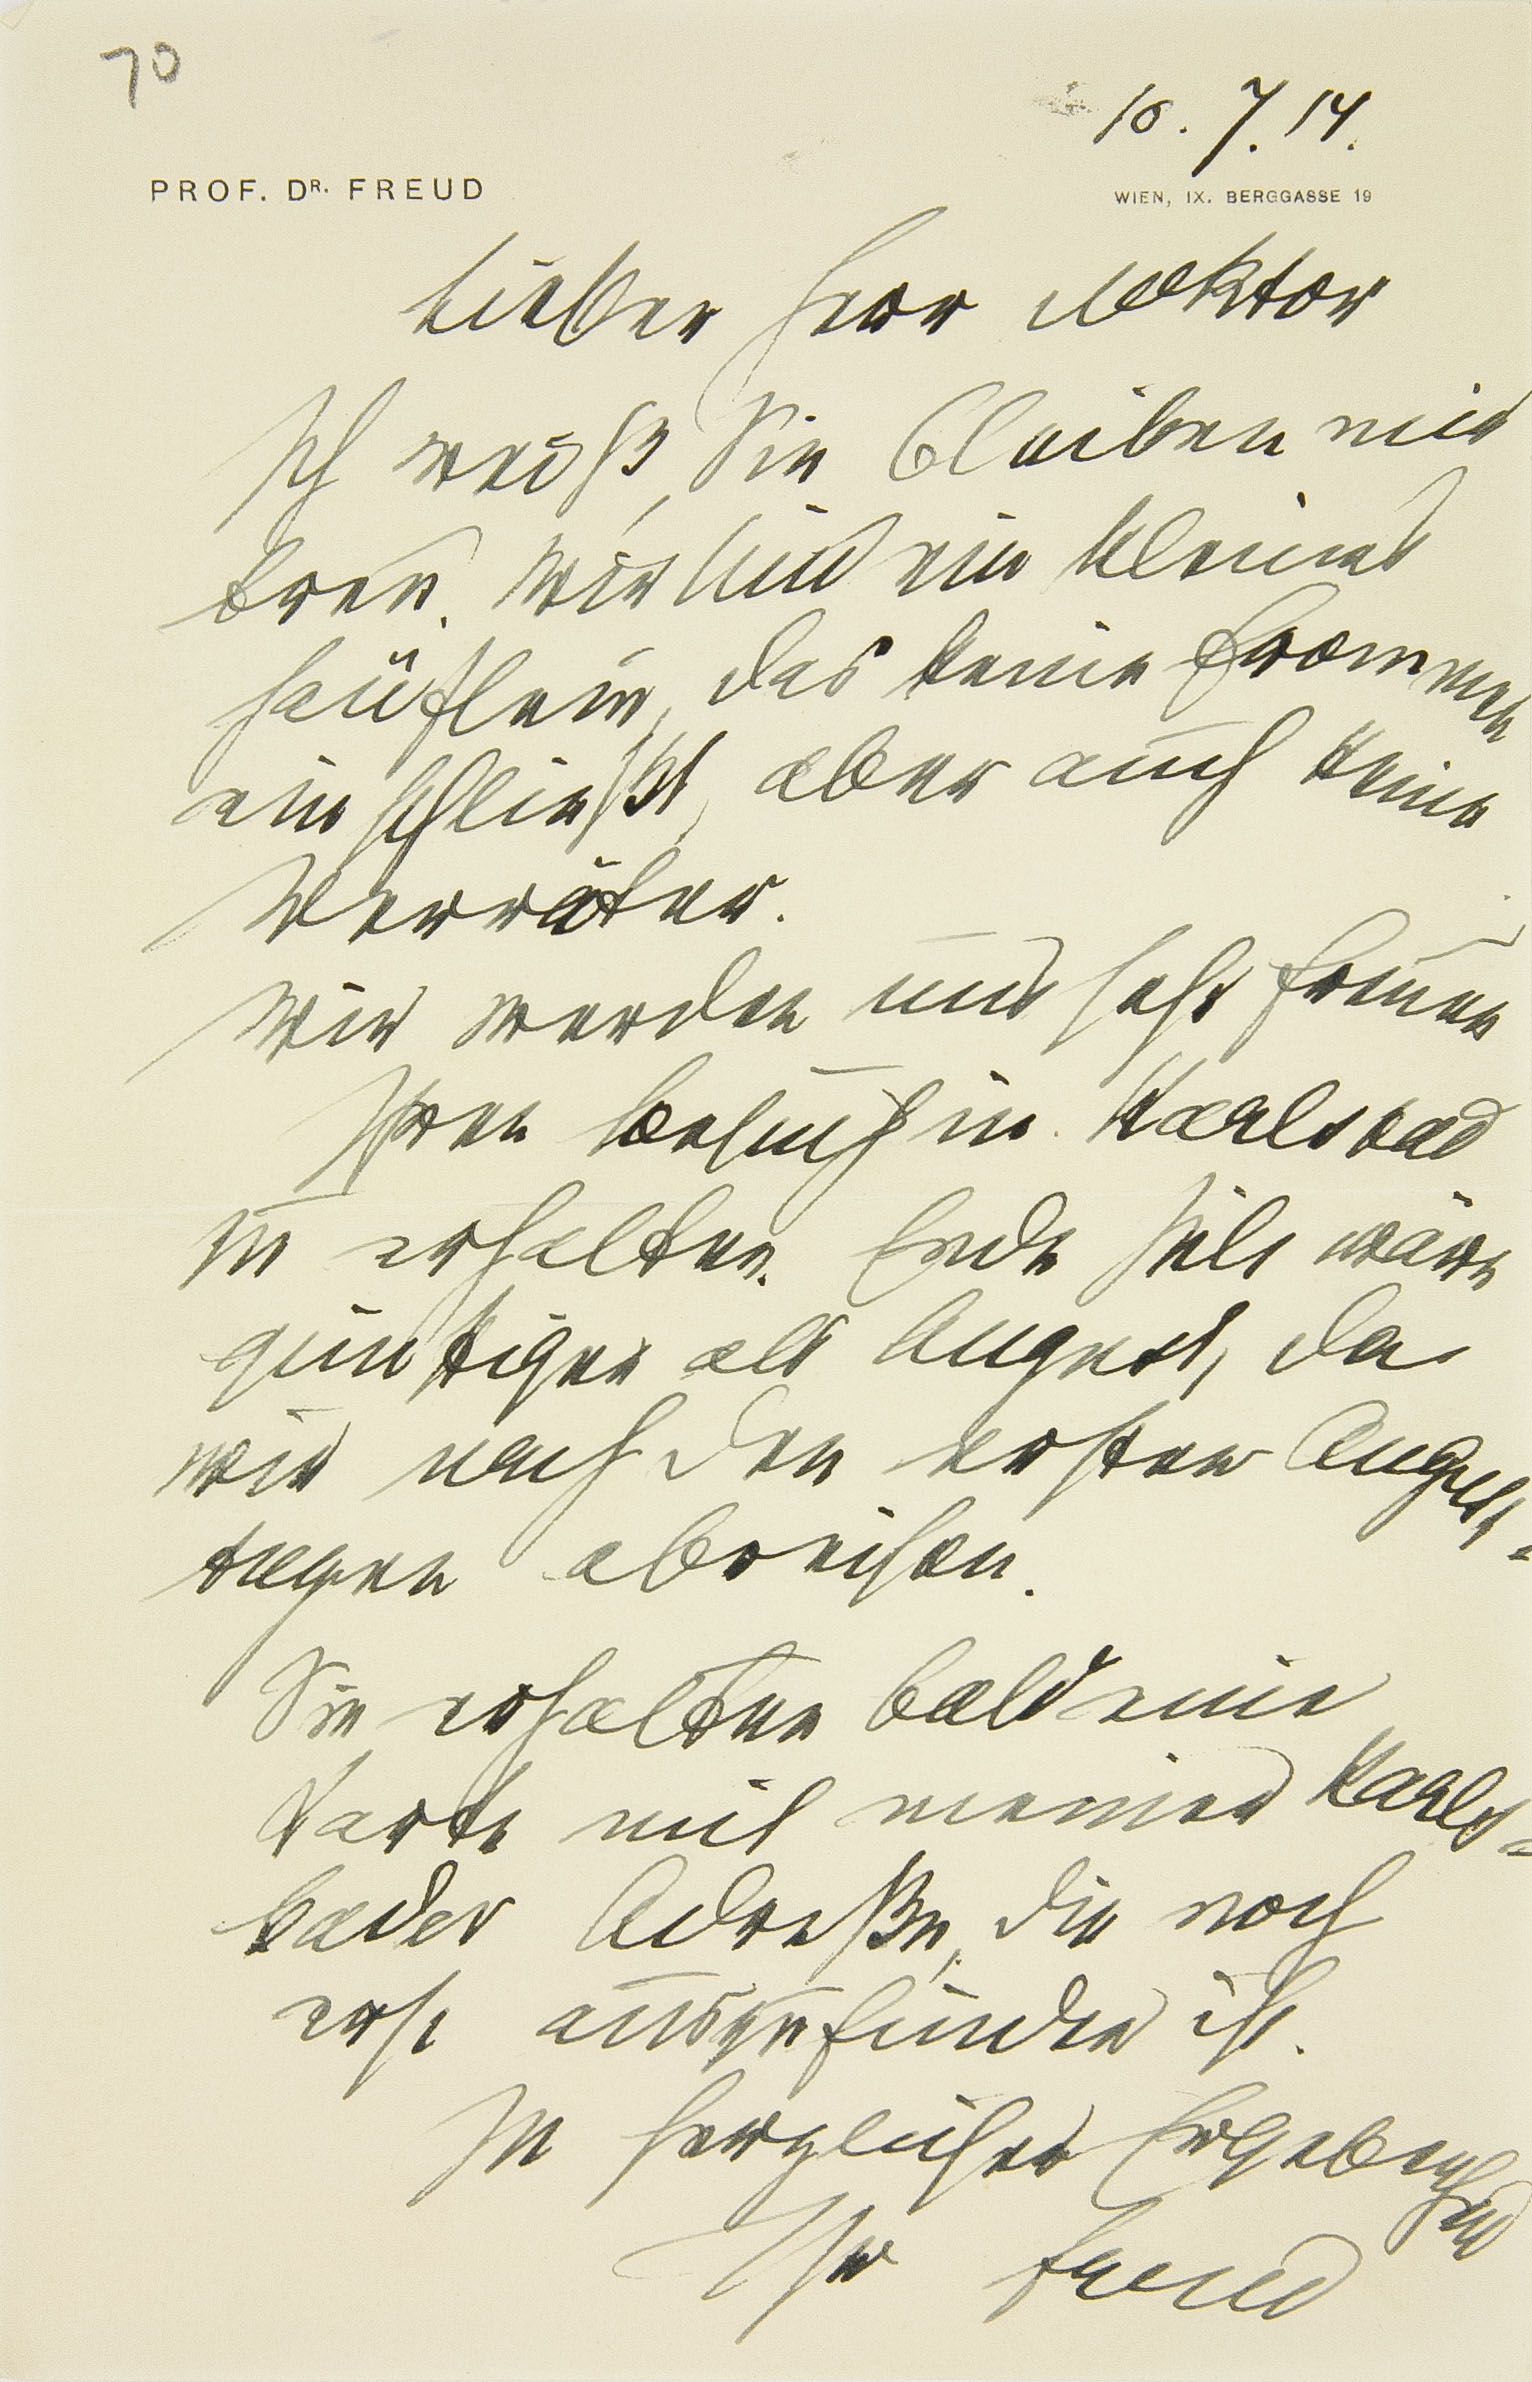 70
10. 7. 14.
PROF. DR. FREUD
WIEN, IX. BERGGASSE 19
Lieber Herr Doktor
Ich weiß, Sie bleiben mir
treu. Wir sind ein kleines
Häuflein, das keine Frommen
einschließt, aber auch keine
Verräter.
Wir werden uns sehr freuen
Ihren Besuch in Karlsbad
zu erhalten. Ende Juli wäre
günstiger als August, da
wir nach den ersten August-
tagen abreisen.
Sie erhalten bald eine
Karte mit meiner Karls-
bader Adreße, die noch
erst auszufinden ist.
In herzlicher Ergebenheit
Ihr Freud